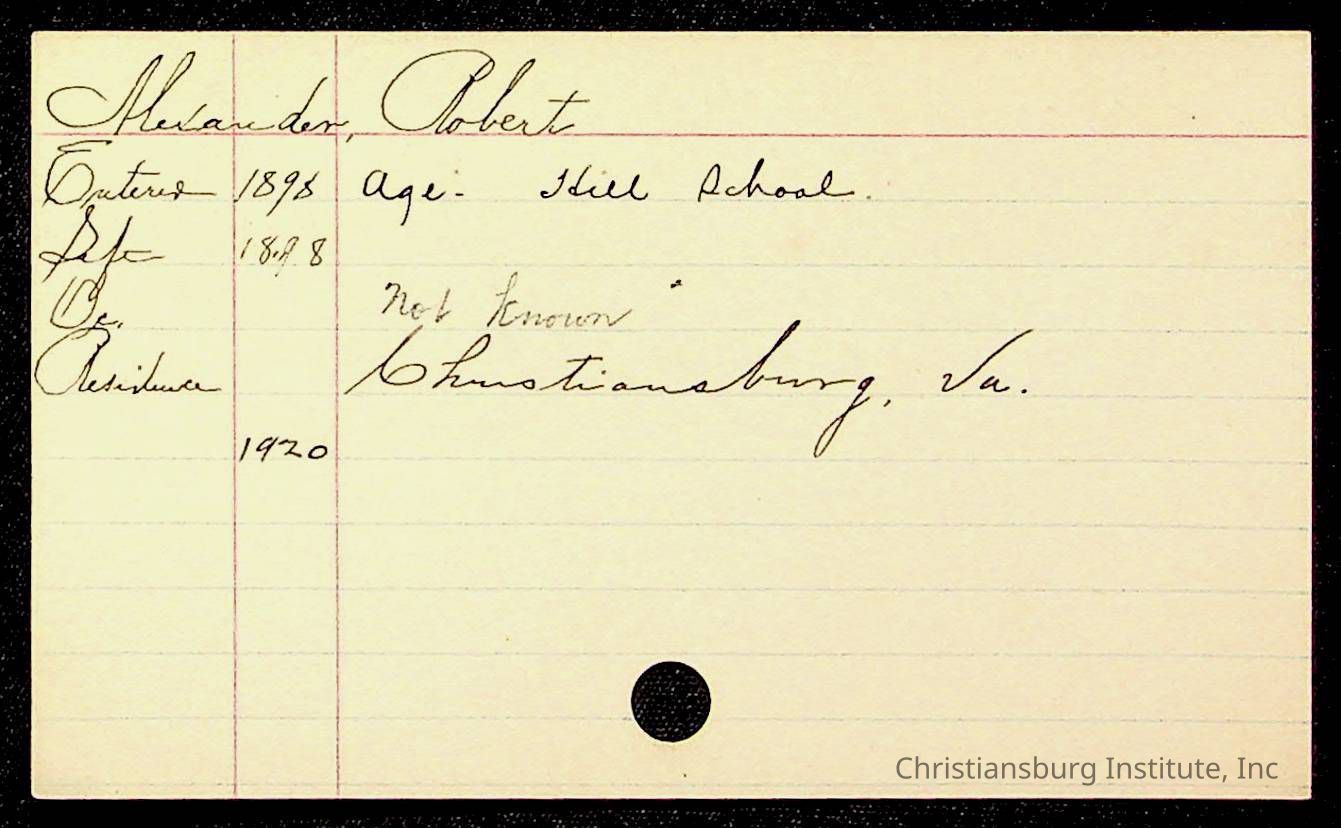 Alexander, Robert
Entered 1898 Age- Hill School.
Left 1898
Oc. Not known
Residence Christiansburg, Va.
1920
Christiansburg Institute, Inc